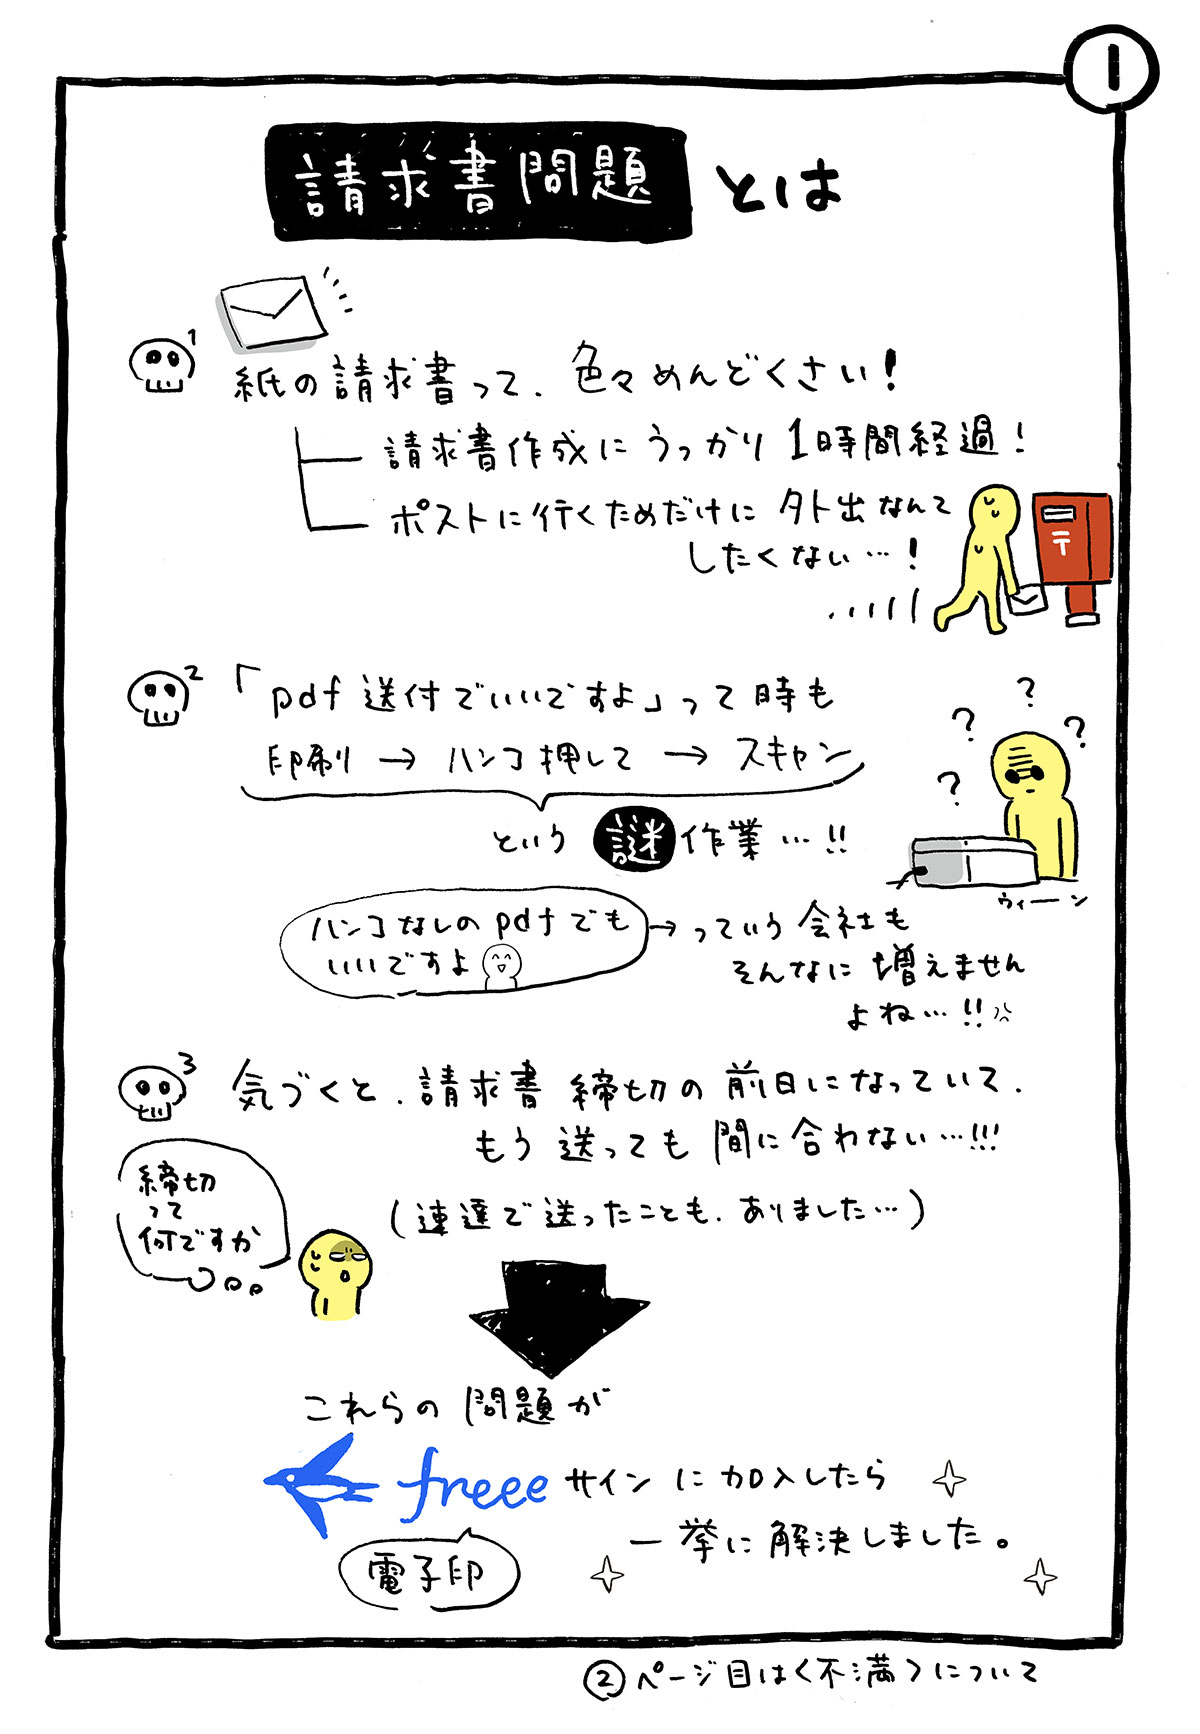 1
請求書問題 とは
1
紙の請求書って、色々めんどくさい!
請求書作成にうっかり1時間経過!
ポストに行くためだけに外出なんて
したくない…!
〒
2
「pdf送付でいいですよ」って時も
印刷→ハンコ押して→スキャン
という 謎 作業…!!
? ? ? ?
ウィーン
ハンコなしのpdfでも
いいですよ
→っていう会社も
そんなに増えません
よね…!!
3
気づくと、請求書 締切の前日になっていて、
もう送っても間に合わない…!!!
(速達で送ったことも、ありました…)
締切
って
何ですか
これらの問題が
freee サインに加入したら
一挙に解決しました。
電子印
②ページ目は〈不満〉について